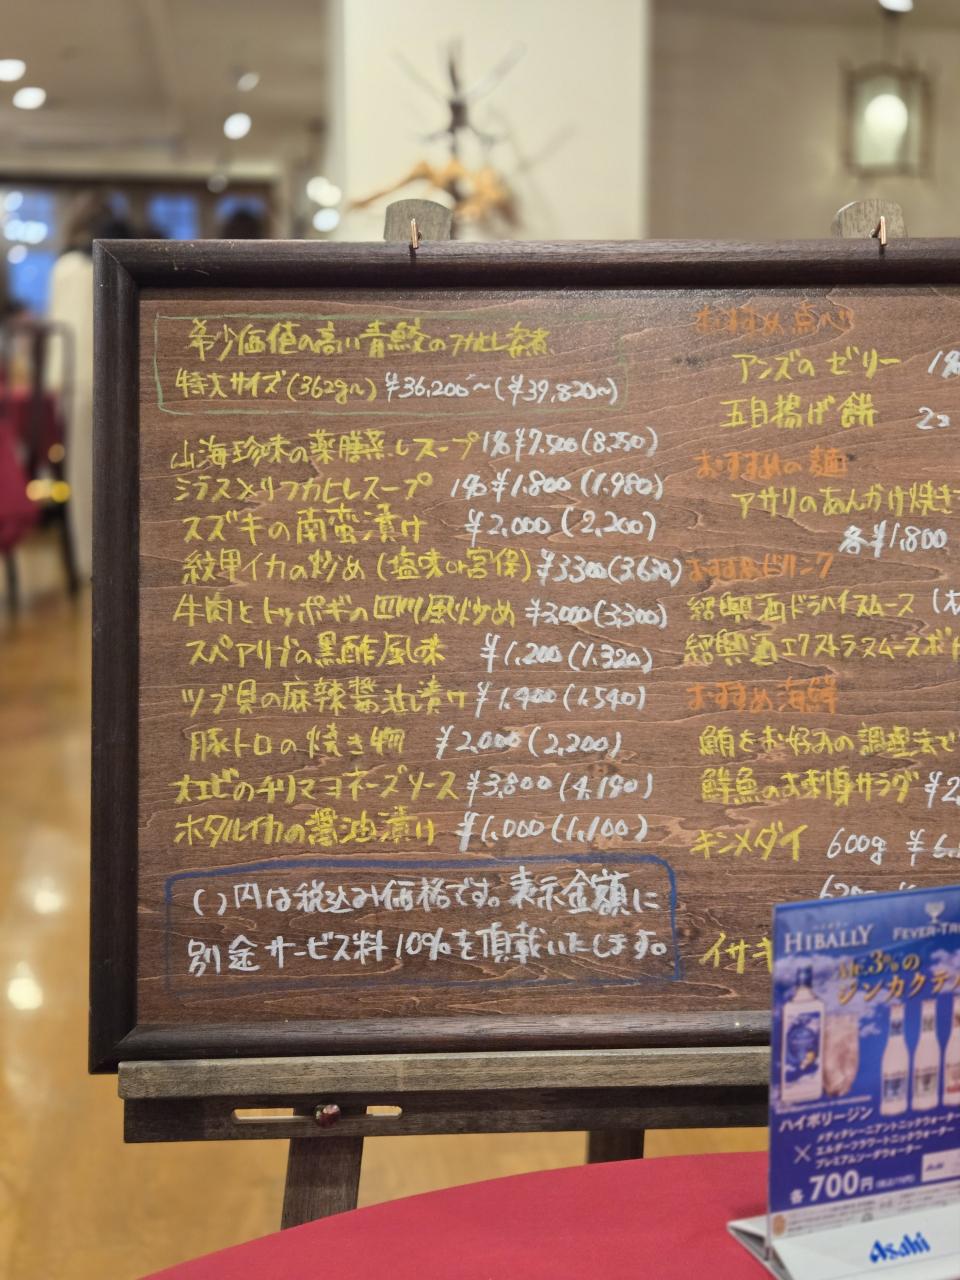 希少価値の高い青鮫のフカヒレ姿煮
特大サイズ(362g〜) ¥36,200〜(¥39,820〜)
山海珍味の薬膳蒸しスープ 1名¥7,500(8,250)
シラス入りフカヒレスープ 1名¥1,800(1,980)
スズキの南蛮漬け ¥2,000(2,200)
紋甲イカの炒め(塩味or宮保) ¥3300(3630)
牛肉とトッポギの四川風炒め ¥3,000(3,300)
スペアリブの黒酢風味 ¥1,200(1,320)
ツブ貝の麻辣醤油漬け ¥1,400(1,540)
豚トロの焼き物 ¥2,000(2,200)
大エビのチリマヨネーズソース ¥3,800(4,180)
ホタルイカの醤油漬け ¥1,000(1,100)
( )内は税込み価格です。表示金額に
別途サービス料10%を頂戴いたします。
おすすめ点心
アンズのゼリー 1名
五目揚げ餅 2コ
おすすめの麺
アサリのあんかけ焼き
各¥1,800
おすすめドリンク
紹興酒ドラハイスムース
紹興酒エクストラスムースボト
おすすめ海鮮
鮪をお好みの調理法で
鮮魚のお刺身サラダ ¥2
キンメダイ 600g ¥6
イサキ
HIBALLY FEVER-TR
Alc.3%の
ジンカクテ
ハイボリージン
×
メディタレーニアントニックウォーター
エルダーフラワートニックウォーター
プレミアムソーダウォーター
各700円
Asahi